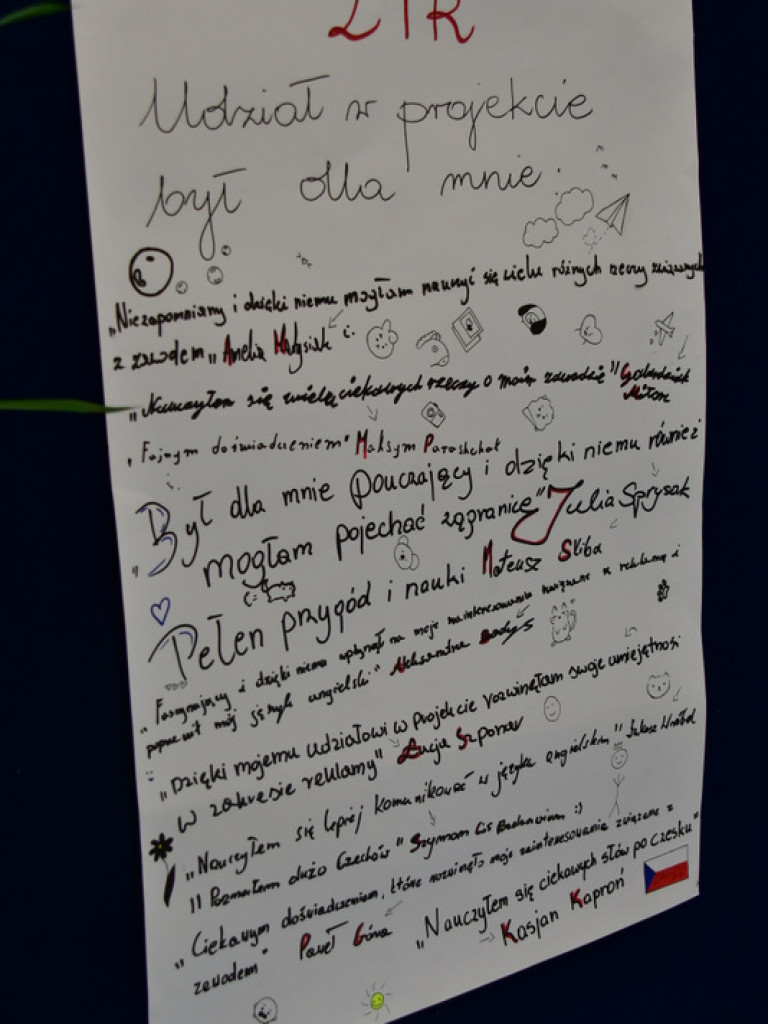 Udział w projekcie
był dla mnie:
„Niezapomniany i dzięki niemu mogłam nauczyć się wielu różnych rzeczy związanych
z zawodem„ Amelia Matysiak
„Nauczyłem się wielu ciekawych rzeczy o moim zawodzie"
Miłosz
„Fajnym doświadczeniem" Maksym Parashchak
„Był dla mnie pouczający i dzięki niemu również
mogłam pojechać zagranicę" Julia Sprysak
Pełen przygód i nauki Mateusz Śliba
„Fascynujący i dzięki niemu wpłynął na moje zainteresowania związane z reklamą i
poprawił mój język angielski" Aleksandra
„Dzięki mojemu udziałowi w projekcie rozwinęłam swoje umiejętnosi
w zakresie reklamy" Łucja Szponar
„Nauczyłem się lepiej komunikować w języku angielskim" Łukasz Wróbel
" Poznałam dużo Czechów" Szymon Lis :)
„Ciekawym doświadczeniem, które rozwinęło moje zainteresowania związane z
zawodem" Paweł Góra
„Nauczyłem się ciekawych słów po czesku"
Kasjan Kaproń